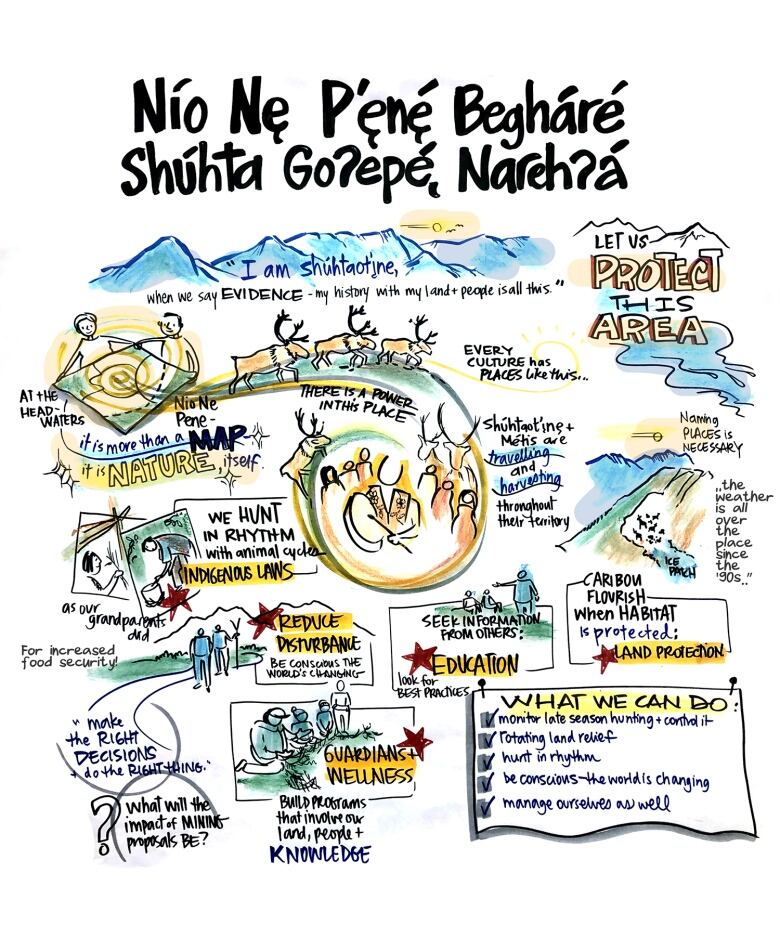 Nío Nę P'ęnę́ Begháré
Shúhta Goɂepé, Narehɂá
"I am shúhtaot'įne,
when we say EVIDENCE - my history with my land + people is all this."
LET US
PROTECT
THIS
AREA
AT THE
HEAD-
WATERS
Nío Ne
Pene -
it is more than a MAP
it is NATURE, itself.
THERE IS A POWER
IN THIS PLACE
EVERY
CULTURE has
PLACES like this...
Shúhtaot'įne +
Métis are
travelling
and
harvesting
throughout
their territory
Naming
PLACES is
NECESSARY
"the
weather
is all
over
the
place
since
the
'90s.."
ICE
PATCH
WE HUNT
IN RHYTHM
with animal cycles
INDIGENOUS LAWS
as our
grandparents
did
For increased
food security!
REDUCE
DISTURBANCE
BE CONSCIOUS THE
WORLD'S CHANGING
SEEK INFORMATION
FROM OTHERS:
EDUCATION
look for
BEST PRACTICES
CARIBOU
FLOURISH
when HABITAT
is protected:
LAND PROTECTION
"make
the RIGHT
DECISIONS
+ do the RIGHT THING."
? what will the
impact of MINING
proposals BE?
GUARDIANS +
WELLNESS
BUILD PROGRAMS
that involve our
land, people +
KNOWLEDGE
WHAT WE CAN DO:
monitor late season hunting + control it
rotating land relief
hunt in rhythm
be conscious - the world is changing
manage ourselves as well